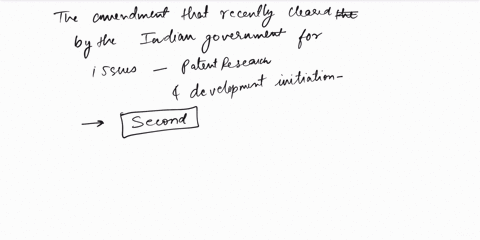 The amendment that recently cleared the
by the Indian government for
issues — Patent Research
& development initiation—
→ Second